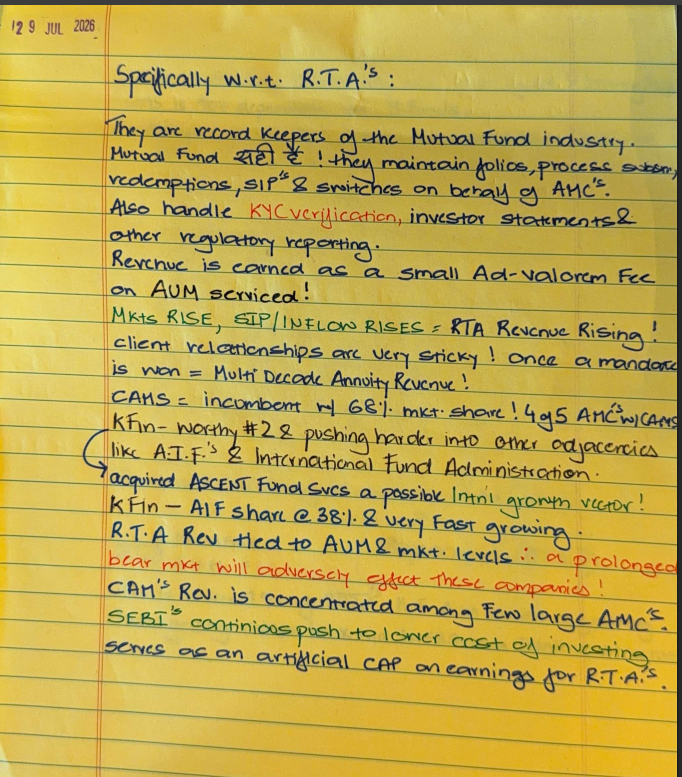 29 JUL 2026
Specifically w.r.t. R.T.A.'s :
They are record keepers of the Mutual Fund industry.
Mutual Fund सही है ! they maintain folios, process subsn,
redemptions, SIP's & switches on behalf of AMC's.
Also handle KYC verification, investor statements &
other regulatory reporting.
Revenue is earned as a small Ad-valorem Fee
on AUM serviced !
Mkts RISE, SIP/INFLOW RISES = RTA Revenue Rising !
client relationships are very sticky ! Once a mandate
is won = Multi Decade Annuity Revenue !
CAMS = incumbent w/ 68% mkt. share ! 4 of 5 AMC's w/ CAMS
KFin - worthy #2 & pushing harder into other adjacencies
like A.I.F.'s & International Fund Administration.
acquired ASCENT Fund Svcs a possible Intnl growth vector !
KFin - AIF share @ 38% & very Fast growing.
R.T.A Rev tied to AUM & mkt. levels ∴ a prolonged
bear mkt will adversely effect these companies !
CAM's Rev. is concentrated among Few large AMC's.
SEBI's continios push to lower cost of investing
serves as an artificial CAP on earnings for R.T.A.'s.